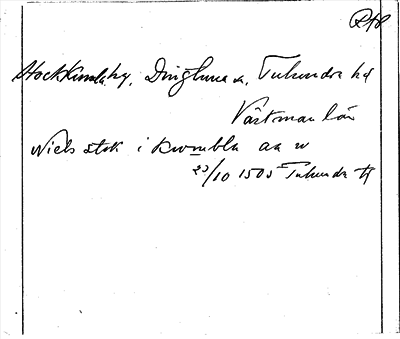 Stockkumla by, Dingtuna sn, Tuhundra hd
Västmanlän
Niels stok i kwmbla aa w
23/10 1505 Tuhundr hd